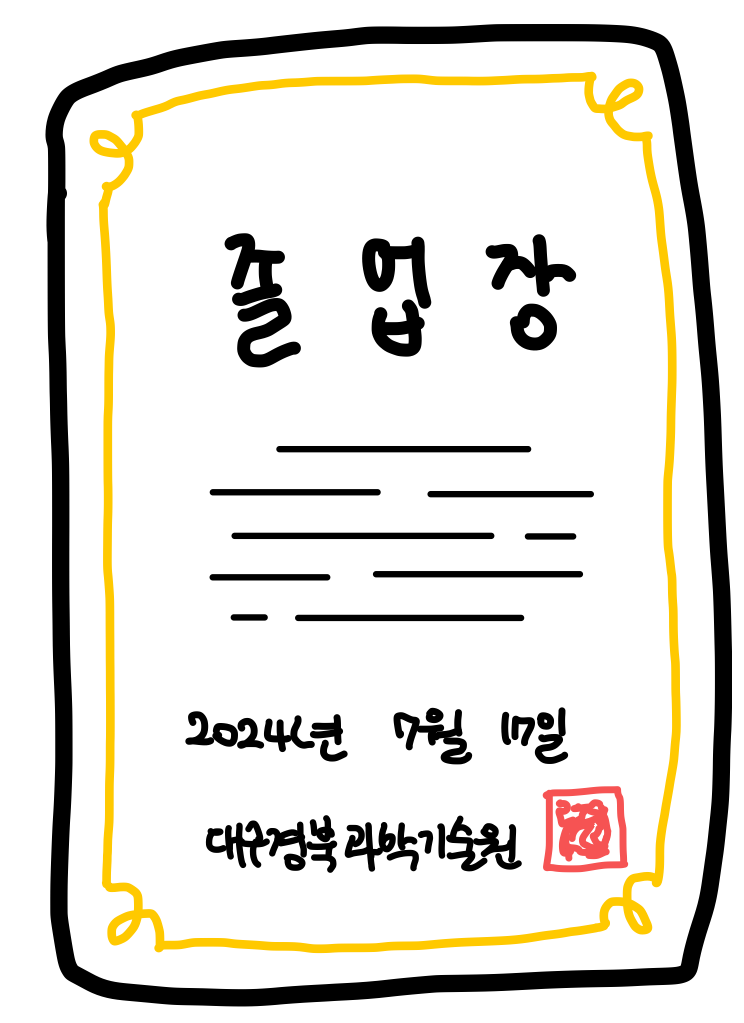 졸업장
2024년 7월 17일
대구경북과학기술원